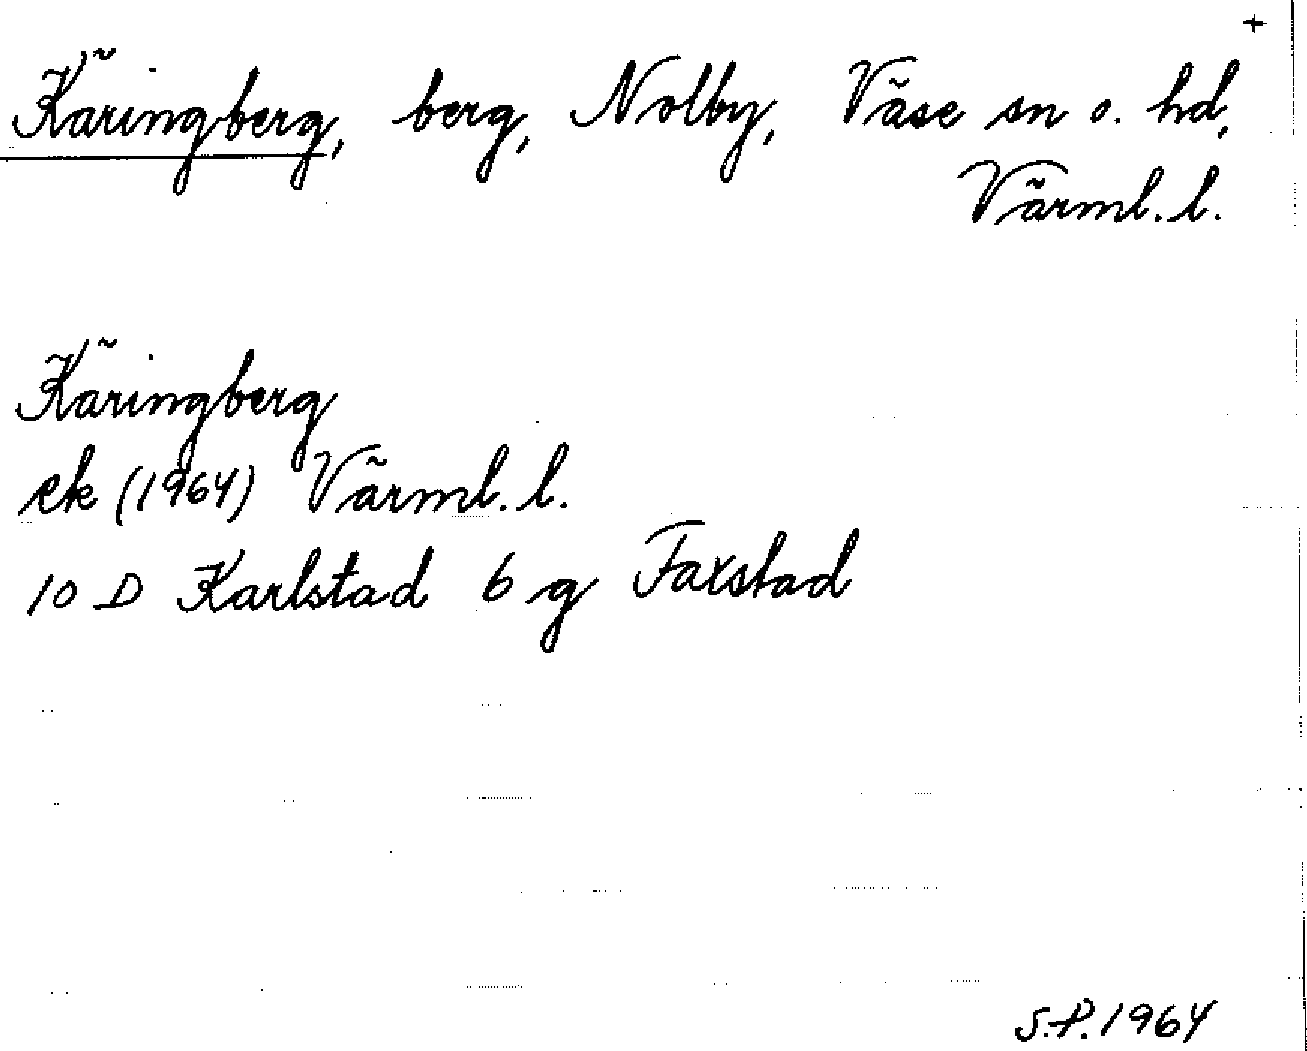 +
Käringberg, berg, Nolby, Väse sn o. hd,
Värml. l.
Käringberg
ek (1964) Värml. l.
10 D Karlstad 6 g Faxstad
S.P. 1964